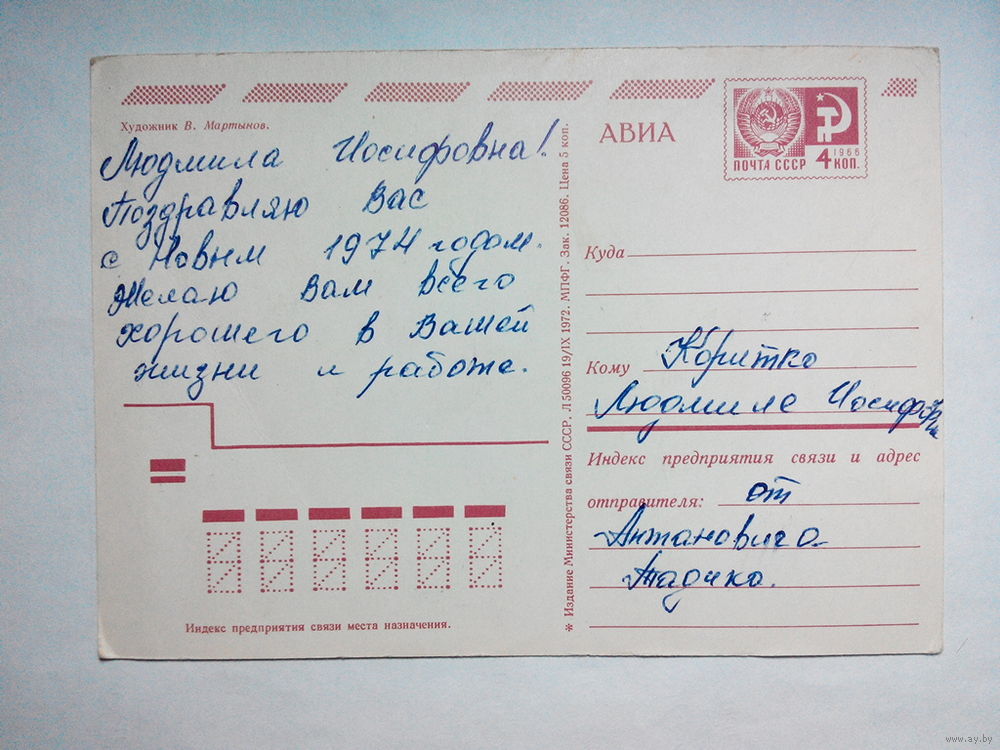 Художник В. Мартынов.
Людмила Иосифовна!
Поздравляю Вас
с Новым 1974 годом.
Желаю Вам всего
хорошего в Вашей
жизни и работе.
Индекс предприятия связи места назначения.
* Издание Министерства связи СССР. Л 50096 19/IX 1972. МПФГ. Зак. 12086. Цена 5 коп.
АВИА
ПОЧТА СССР 4 КОП.
1966
Куда
Кому Коритко
Людмиле
Индекс предприятия связи и адрес
отправителя: от
Антановича
www.ay.by